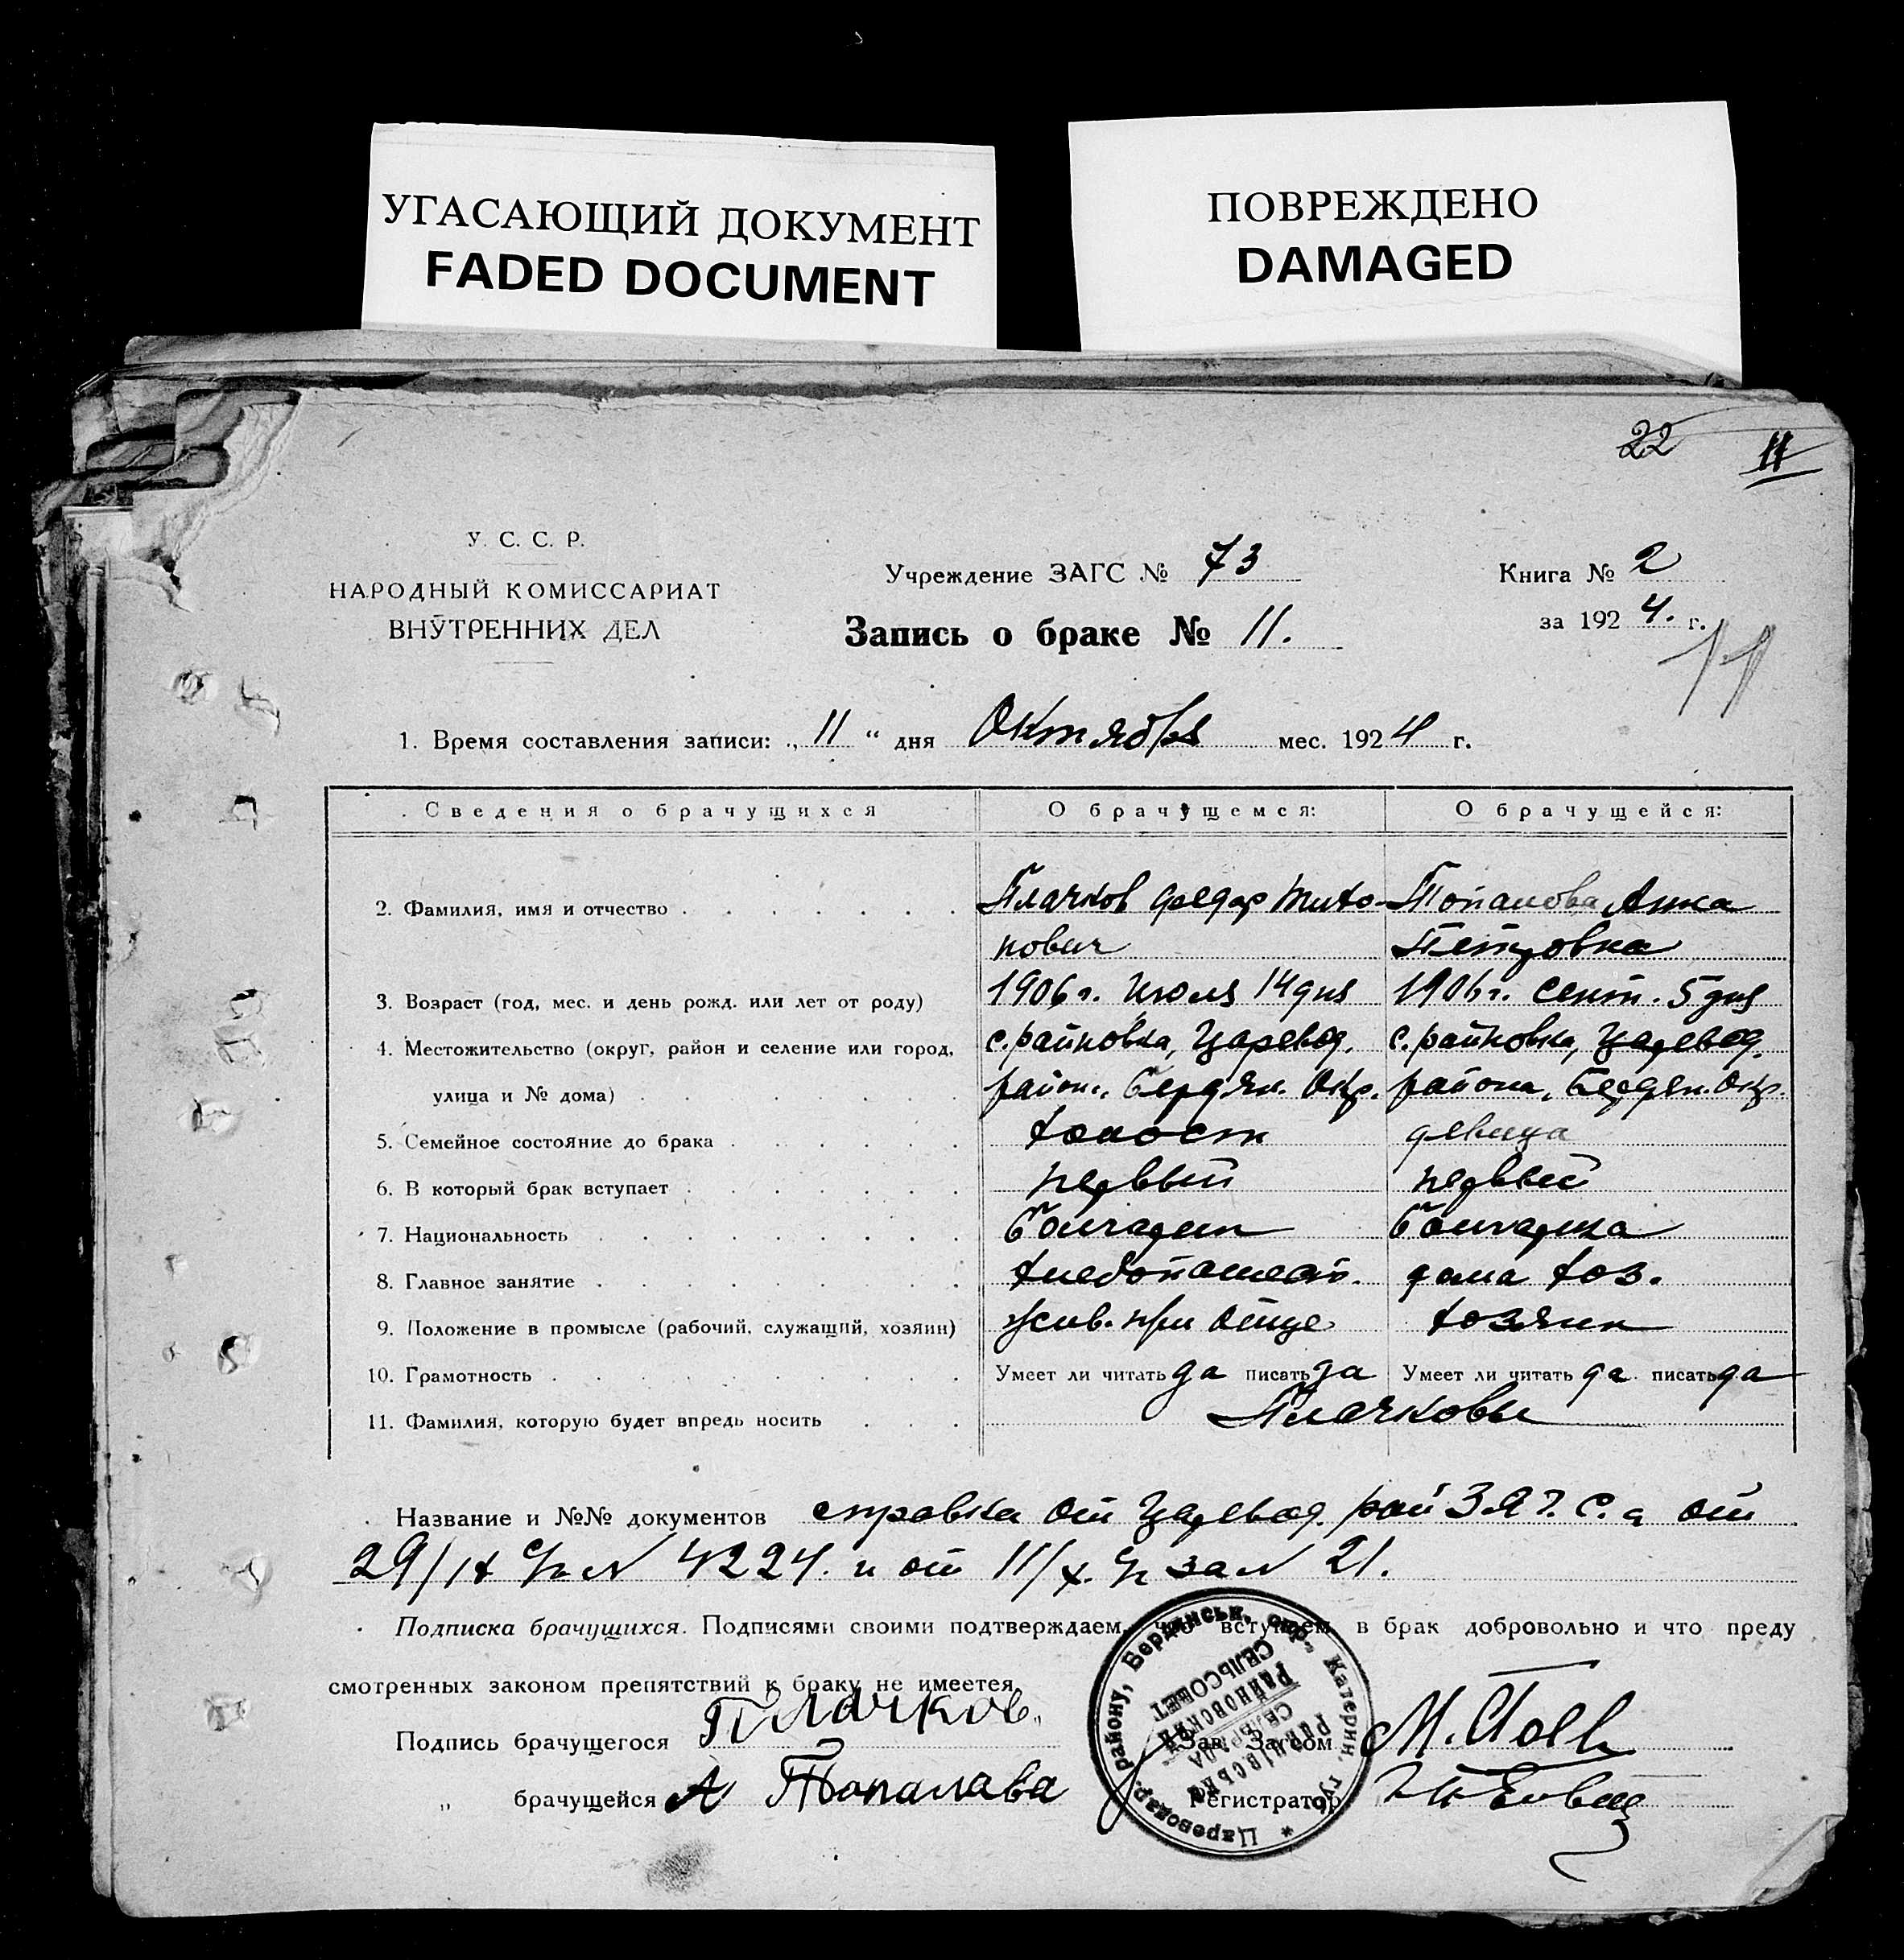 УГАСАЮЩИЙ ДОКУМЕНТ
FADED DOCUMENT
ПОВРЕЖДЕНО
DAMAGED
22 11
У. С. С. Р.
НАРОДНЫЙ КОМИССАРИАТ
ВНУТРЕННИХ ДЕЛ
Учреждение ЗАГС № 73
Запись о браке № 11.
Книга № 2
за 1924. г.
1. Время составления записи: „11“ дня Октября мес. 1924 г.
Сведения о брачущихся О брачущемся: О брачущейся:
2. Фамилия, имя и отчество Плачков Федор Тихо- Топалова Анна
нович Петровна
3. Возраст (год, мес. и день рожд. или лет от роду) 1906 г. Июля 14 дня 1906 г. Сент. 5 дня
4. Местожительство (округ, район и селение или город, с. райновка, Царевод. с. райновка, Царевод.
улица и № дома) район., Бердян. Окр. района, Бердян. Окр.
5. Семейное состояние до брака холост девица
6. В который брак вступает первый первый
7. Национальность болгарин болгарка
8. Главное занятие хлебопашест. дома хоз.
9. Положение в промысле (рабочий, служащий, хозяин) жив. при отце хозяин
10. Грамотность Умеет ли читать да писать да Умеет ли читать да писать да
11. Фамилия, которую будет впредь носить Плачковы
Название и №№ документов справка от Царевод. рай от
29/IX № 4224. и от 11/X. за № 21.
Подписка брачущихся. Подписями своими подтверждаем, что вступаем в брак добровольно и что преду
смотренных законом препятствий к браку не имеется.
Подпись брачущегося Плачков
Зав. Загсом
„ брачущейся А Топалава
Регистратор
Цареводар. району, Бердянськ. окр., Катерин. губ.
РАЙНІВСЬКА
СЕЛЬРАДА
РАЙНОВСКИЙ
СЕЛЬСОВЕТ